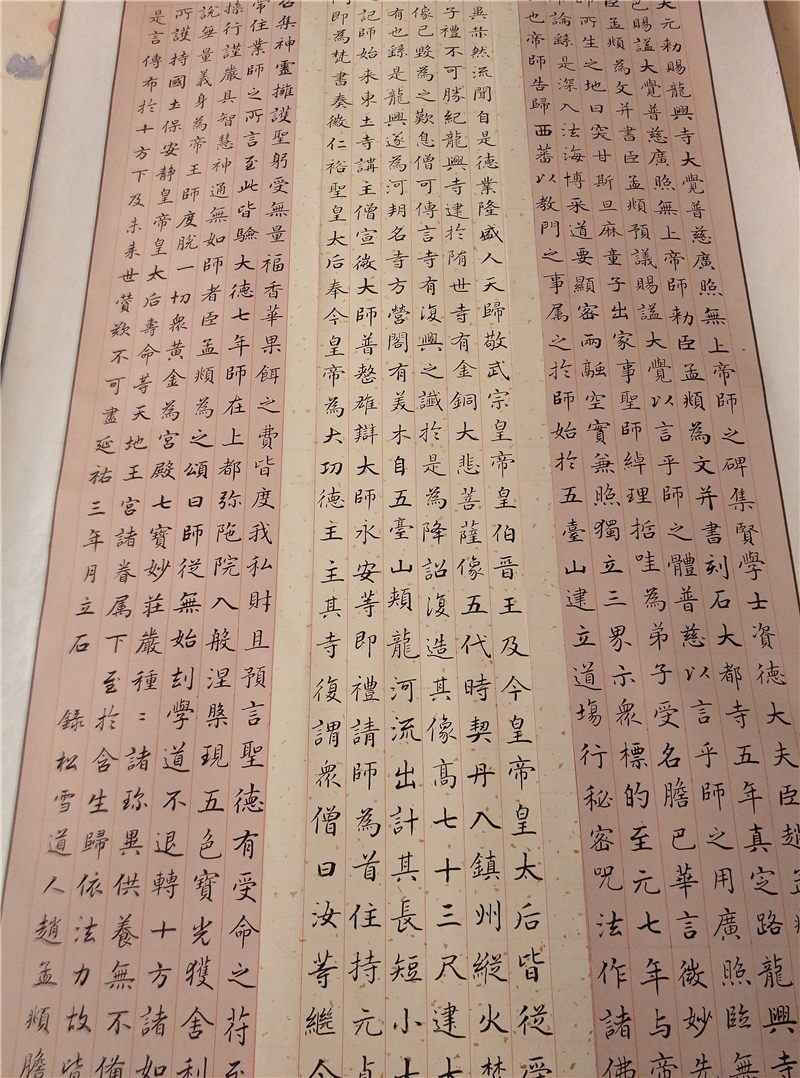 大元勅賜龍興寺大覺普慈廣照無上帝師之碑集賢學士資德大夫臣趙孟
已賜謚大覺普慈廣照無上帝師勅臣孟頫為文并書刻石大都寺五年真定路龍興寺
臣孟頫為文并書臣孟頫預議賜謚大覺以言乎師之體普慈以言乎師之用廣照臨無
師所生之地曰突甘斯旦麻童子出家事聖師綽理括哇為弟子受名膽巴華言微妙先
論繇是深入法海博采道要顯密兩融空實兼照獨立三界示衆標的至元七年与帝
也帝師告歸西蕃以教門之事属之於師始於五臺山建立道塲行秘密咒法作諸佛
異芾然流聞自是德業隆盛人天歸敬武宗皇帝皇伯晉王及今皇帝皇太后皆從受
子禮不可勝紀龍興寺建於隋世寺有金銅大悲菩薩像五代時契丹入鎮州縱火焚
像已毀為之歎息僧可傳言寺有復興之讖於是為降詔復造其像高七十三尺建大
有也繇是龍興遂為河朔名寺方營閣有美木自五臺山頰龍河流出計其長短小大
記師始来東土寺講主僧宣微大師普整雄辯大師永安等即禮請師為首住持元貞
門即為梵書奏徽仁裕聖皇太后奉今皇帝為大功德主主其寺復謂衆僧曰汝等繼今
召集神靈擁護聖躬受無量福香華果餌之費皆度我私財且預言聖德有受命之苻至
常住業師之所言至此皆驗大德七年師在上都弥陁院入般涅槃現五色寶光獲舍利
操行謹嚴具智慧神通無如師者臣孟頫為之頌曰師從無始刦學道不退轉十方諸如
說無量義身為帝王師度脫一切衆黃金為宮殿七寶妙莊嚴種〻諸珎異供養無不備
所護持國土保安靜皇帝皇太后壽命等天地王宮諸眷属下至於含生歸依法力故皆
是言傳布於十方下及未来世讃歎不可盡延祐三年月立石
錄松雪道人趙孟頫膽